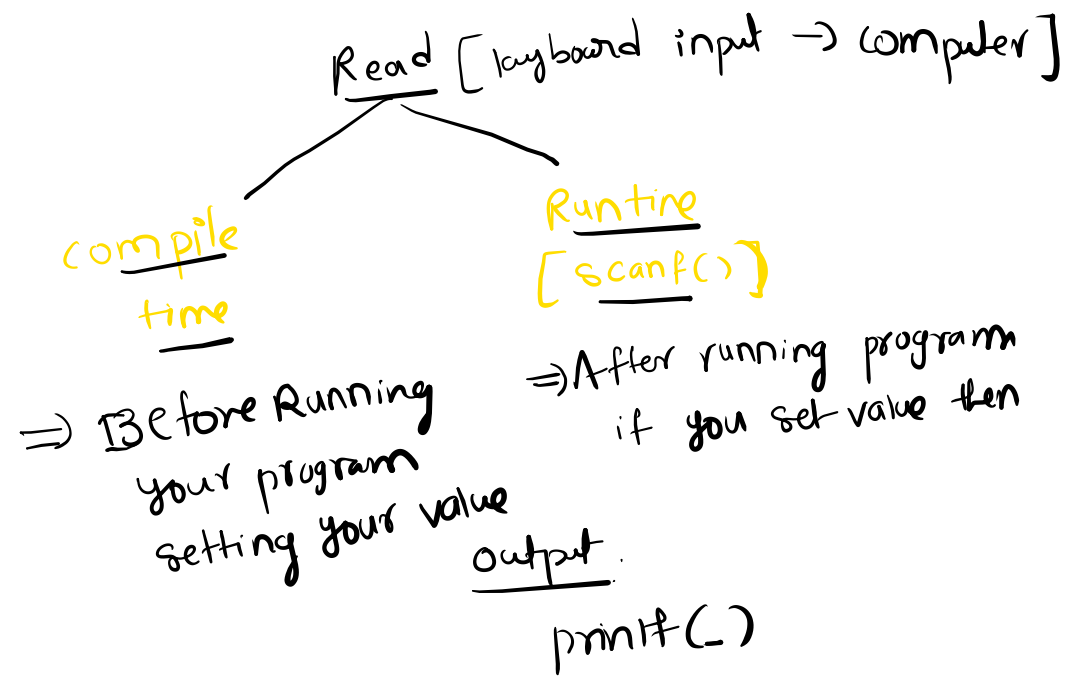 Read [kayboard input → computer]
compile
time
Runtime
[scanf()]
⇒ Before Running
your program
setting your value
⇒ After running program
if you set value then
output
printf(_)